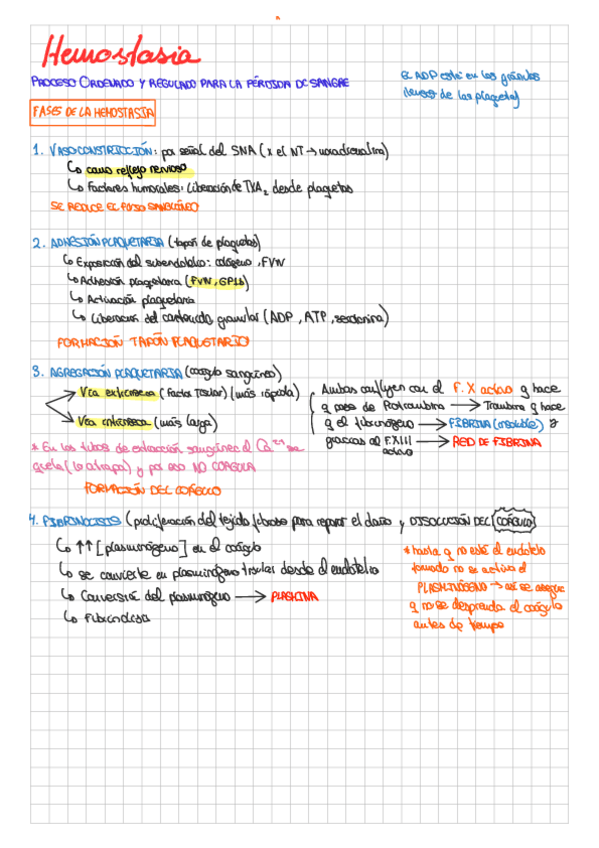 Hemostasia
PROCESO ORDENADO Y REGULADO PARA LA PÉRDIDA DE SANGRE
EL ADP está en los gránulos
densos de las plaquetas
FASES DE LA HEMOSTASIA
1. VASOCONSTRICCIÓN: por señal del SNA (x el NT → noradrenalina)
como reflejo nervioso
Factores humorales: Liberación de TXA2 desde plaquetas
SE REDUCE EL FLUJO SANGUÍNEO
2. ADHESIÓN PLAQUETARIA (tapón de plaquetas)
Exposición del subendotelio: colágeno, FVW
Adhesión plaquetaria (FVW, GP1b)
Activación plaquetaria
Liberación del contenido granular (ADP, ATP, serotonina)
FORMACIÓN TAPÓN PLAQUETARIO
3. AGREGACIÓN PLAQUETARIA (coágulo sanguíneo)
Vía extrínseca (Factor Tisular) (más rápida)
Vía intrínseca (más larga)
Ambas confluyen con el F. X activo q hace
q pase de Protrombina → Trombina q hace
q el fibrinógeno → FIBRINA (insoluble) y
gracias al F.XIII activo → RED DE FIBRINA
* En los tubos de extracción sanguínea el Ca2+ se
quela (lo atrapa) y por eso NO COAGULA
FORMACIÓN DEL COÁGULO
4. FIBRINOLISIS (proliferación del tejido fibroso para reparar el daño y DISOLUCIÓN DEL COÁGULO)
↑↑ [plasminógeno] en el coágulo
se convierte en plasminógeno tisular desde el endotelio
Conversión del plasminógeno → PLASMINA
Fibrinolisa
* hasta q no esté el endotelio
formado no se activa el
PLASMINÓGENO → así se asegura
q no se desprenda el coágulo
antes de tiempo